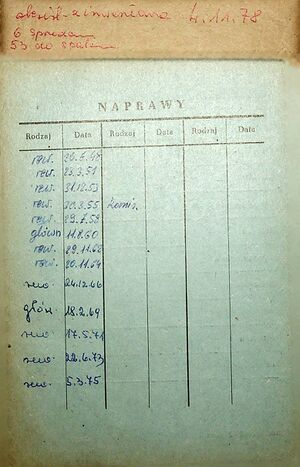 z inwentarza 4.11.78
6 sprzedam
53 do spalenia
NAPRAWY
Rodzaj Data Rodzaj Data Rodzaj Data
rew.
rew. 23.3.51
rew. 31.12.53
rew. 30.3.55
rew. 29.7.58
główn 11.8.60
rew. 29.11.62
rew. 20.11.64
rew. 24.12.66
głów. 18.2.69
rew. 17.5.71
rew. 22.6.73
rew. 5.3.75